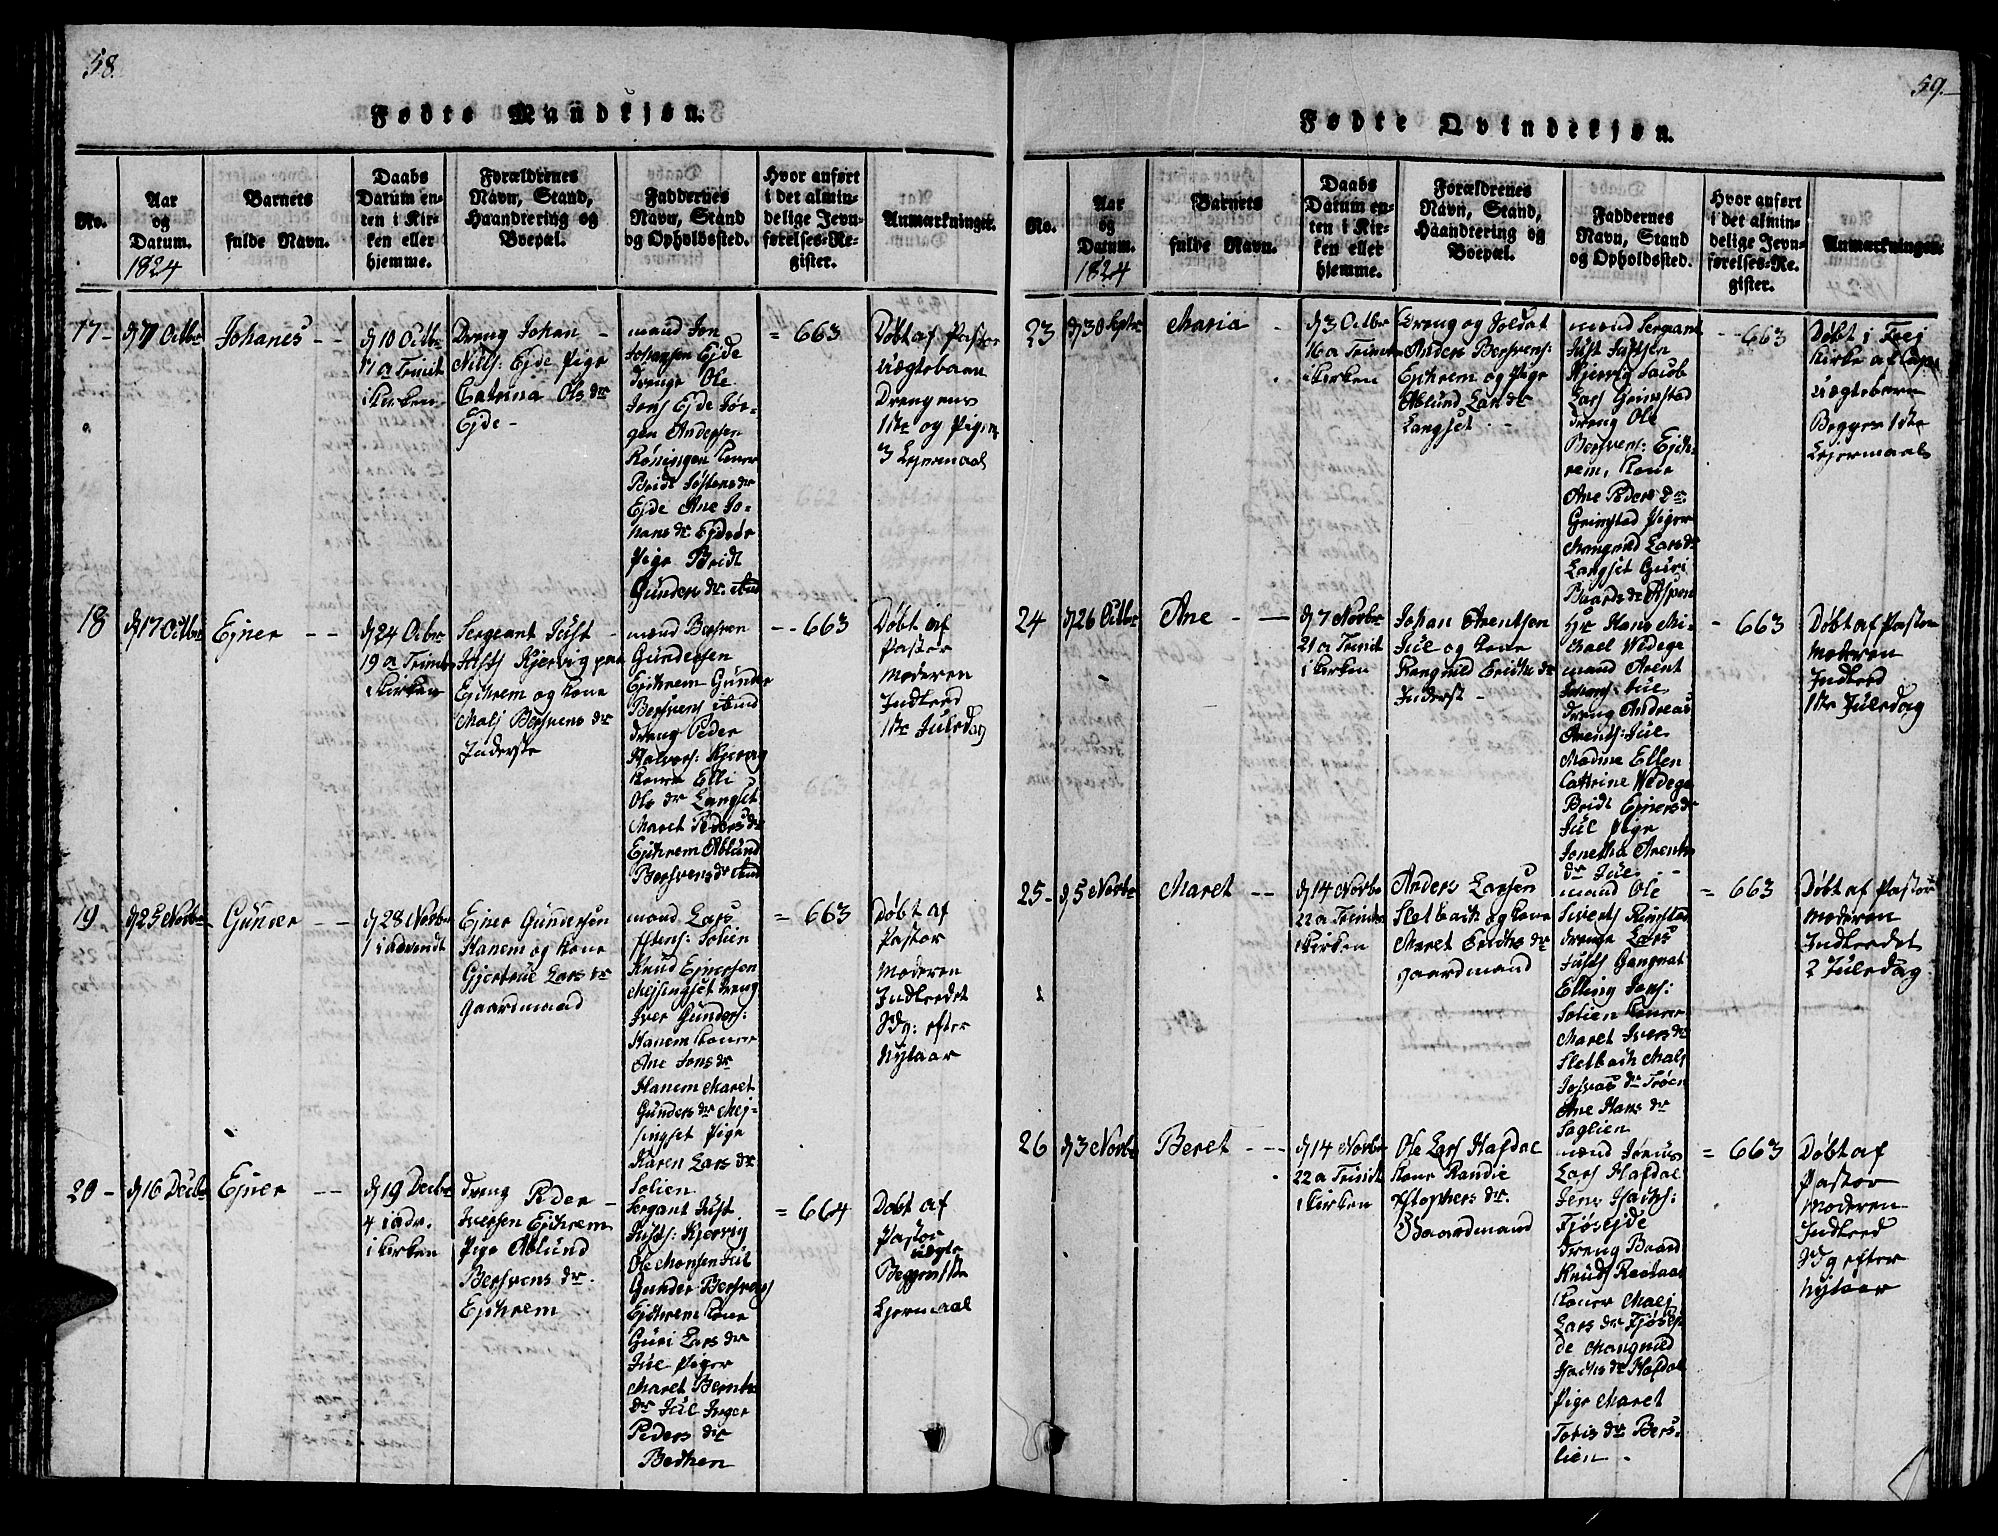 58.
Fødte Mandkjøn.
No.
Aar
og
Datum.
1824
Barnets
fulde Navn.
Daabs
Datum en-
ten i Kir-
ken eller
hjemme.
Forældrenes
Navn, Stand,
Haandtering og
Boepæl.
Faddernes
Navn, Stand
og Opholdssted.
Hvor anført
i det almin-
delige Jevn-
førelses-Re-
gister.
Anmærkninger.
17- d 7 Octbr Johanes - -
d 10 Octbr
17 a Trinit
i Kirken
Dreng Johan
Nills: Ejde Pige
Catrina Ols dr
Ejde -
mænd Jon
Johansen Ejde
Drenge Ole
Jons Ejde Jør-
gen Andersen
Røningen Koner
Bridt Jostens dr
Ejde Ane Jo-
hans dr Ejde
Pige Bridt
Gunders dr
= 663
Døbt af Pastor
uægtebaarn
Drengens
1ste og Pigens
3 Lejermaal
18 d 17 Octbr Ejner - -
d 24 Ocbr
19 a Trinit
i Kirken
Sergeant Just
Justs Kjervig paa
Ejchrem og Kone
Mali Bersvens dr
Inderste
mænd Bersven
Gundersen
Ejchrem Gunder
Bersvens ibid
dreng Peder
Halvors: Kjervig
Koner Elli
Ols dr Langset
Maret Peders dr
Ejchrem Ablund
Bersvens dr ibid
- - 663
Døbt af
Pastor
Moderen
Indleed
1ste Juledag
19 d 25 Novbr Gunder - -
d 28 Novbr
1 i advendt
Ejner Gundersen
Hanem og Kone
Gjertrue Lars dr
gaardmand
mænd Lars
Estens: Solien
Knud Ejnersen
Mejsingset dreng
Iver Gunders:
Hanem Koner
Ane Jons dr
Hanem Maret
Gunders dr Mej-
singset Pige
Karen Lars dr
Solien
= 663
Døbt af
Pastor
Moderen
Indleedet
Sdg: efter
Nytaar
20 - d 16 Decbr Ejner - -
d 19 Decbr
4 i adv.
i Kirken
dreng Peder -
Iversen Ejchrem
Pige Ablund
Bersvens dr.
Ejchrem
Sergant Just
Justs: Kjervig
Ole Monsen Jul
Gunder Bersvens
Ejchrem Kone
Guri Lars dr
Jul Piger
Maret Bernts
dr Jul Inger
Peders dr
Bethen
= 664
Døbt af
Pastor
uægte
Begges 1ste
Lejermaal
59.
Fødte Qvindekjøn.
No.
Aar
og
Datum.
1824
Barnets
fulde Navn.
Daabs
Datum en-
ten i Kir-
ken eller
hjemme.
Forældrenes
Navn, Stand,
Haandtering og
Boepæl.
Faddernes
Navn, Stand
og Opholdssted.
Hvor anført
i det almin-
delige Jevn-
førelses-Re-
gister.
Anmærkninger.
23 d 30 Septr Maria -
d 3 Octbr
16 a Trinit
i Kirken
Dreng og Soldat
Anders Bersvens:
Ejchrem og Pige
Ablund Lars dr
Langset
mænd Sergeant
Just Justsen
Kjervig Jacob
Lars Grimstad
dreng Ole
Bersvens: Ejch-
rem, Kone
Ane Peders dr
Grimstad Piger
Mangnild Lars dr
Langset Guri
Baards dr Aspen
- - 663
Døbt i Trej
Kirke af
uægtebarn
Begges 1ste
Lejermaal
24 d 26 Octbr Ane - -
d 7 Novbr
21 a Trinit
i Kirken
Johan Arentsen
Jul og Kone
Rangnild Erichs dr
Inderst -
Hr Hans Mi-
chael Wedege
mænd Arent
Johans: Jul
dreng Andreas
Arents: Jul
Madme Ellen
Cathrine Wedege
Bridt Ejners dr
Jul Pige
Jonetha Arents
dr Jul - -
- 663
Døbt af Pastor
Moderen
Indleed
1ste Juledag
25 - d 5 Novbr Maret - -
d 14 Novbr
22 a Trinit
i Kirken
Anders Larsen
Sletbach og Kone
Maret Erichs dr
gaardmand
mænd Ole
Siverts Rimstad
drenge Lars
Justs Gangnat
Elling Jens:
Solien Koner
Maret Ivers dr
Sletbach Mali
Josvas dr Trøen
Ane Hans dr
Saglien
= 663
Døbt af Pastor
Moderen
Indleedet
2 Juledag
26 d 3 Novbr Beret - - -
d 14 Novbr
22 a Trinit
i Kirken
Ole Lars Hafdal
Kone Randie
Xstophers dr.
Gaardmand
mænd Jonus
Lars Hafdal
Jens Isachs:
Fjøsejde
dreng Baard
Knuds
Koner Mali
Lars dr Fjøsej-
de Mangnild
Isachs dr Hafdal
Pige Maret
Tobis dr Bers-
lien -
= 663
Døbt af
Pastor
Moderen
Indleed
Sdg efter
Nytaar